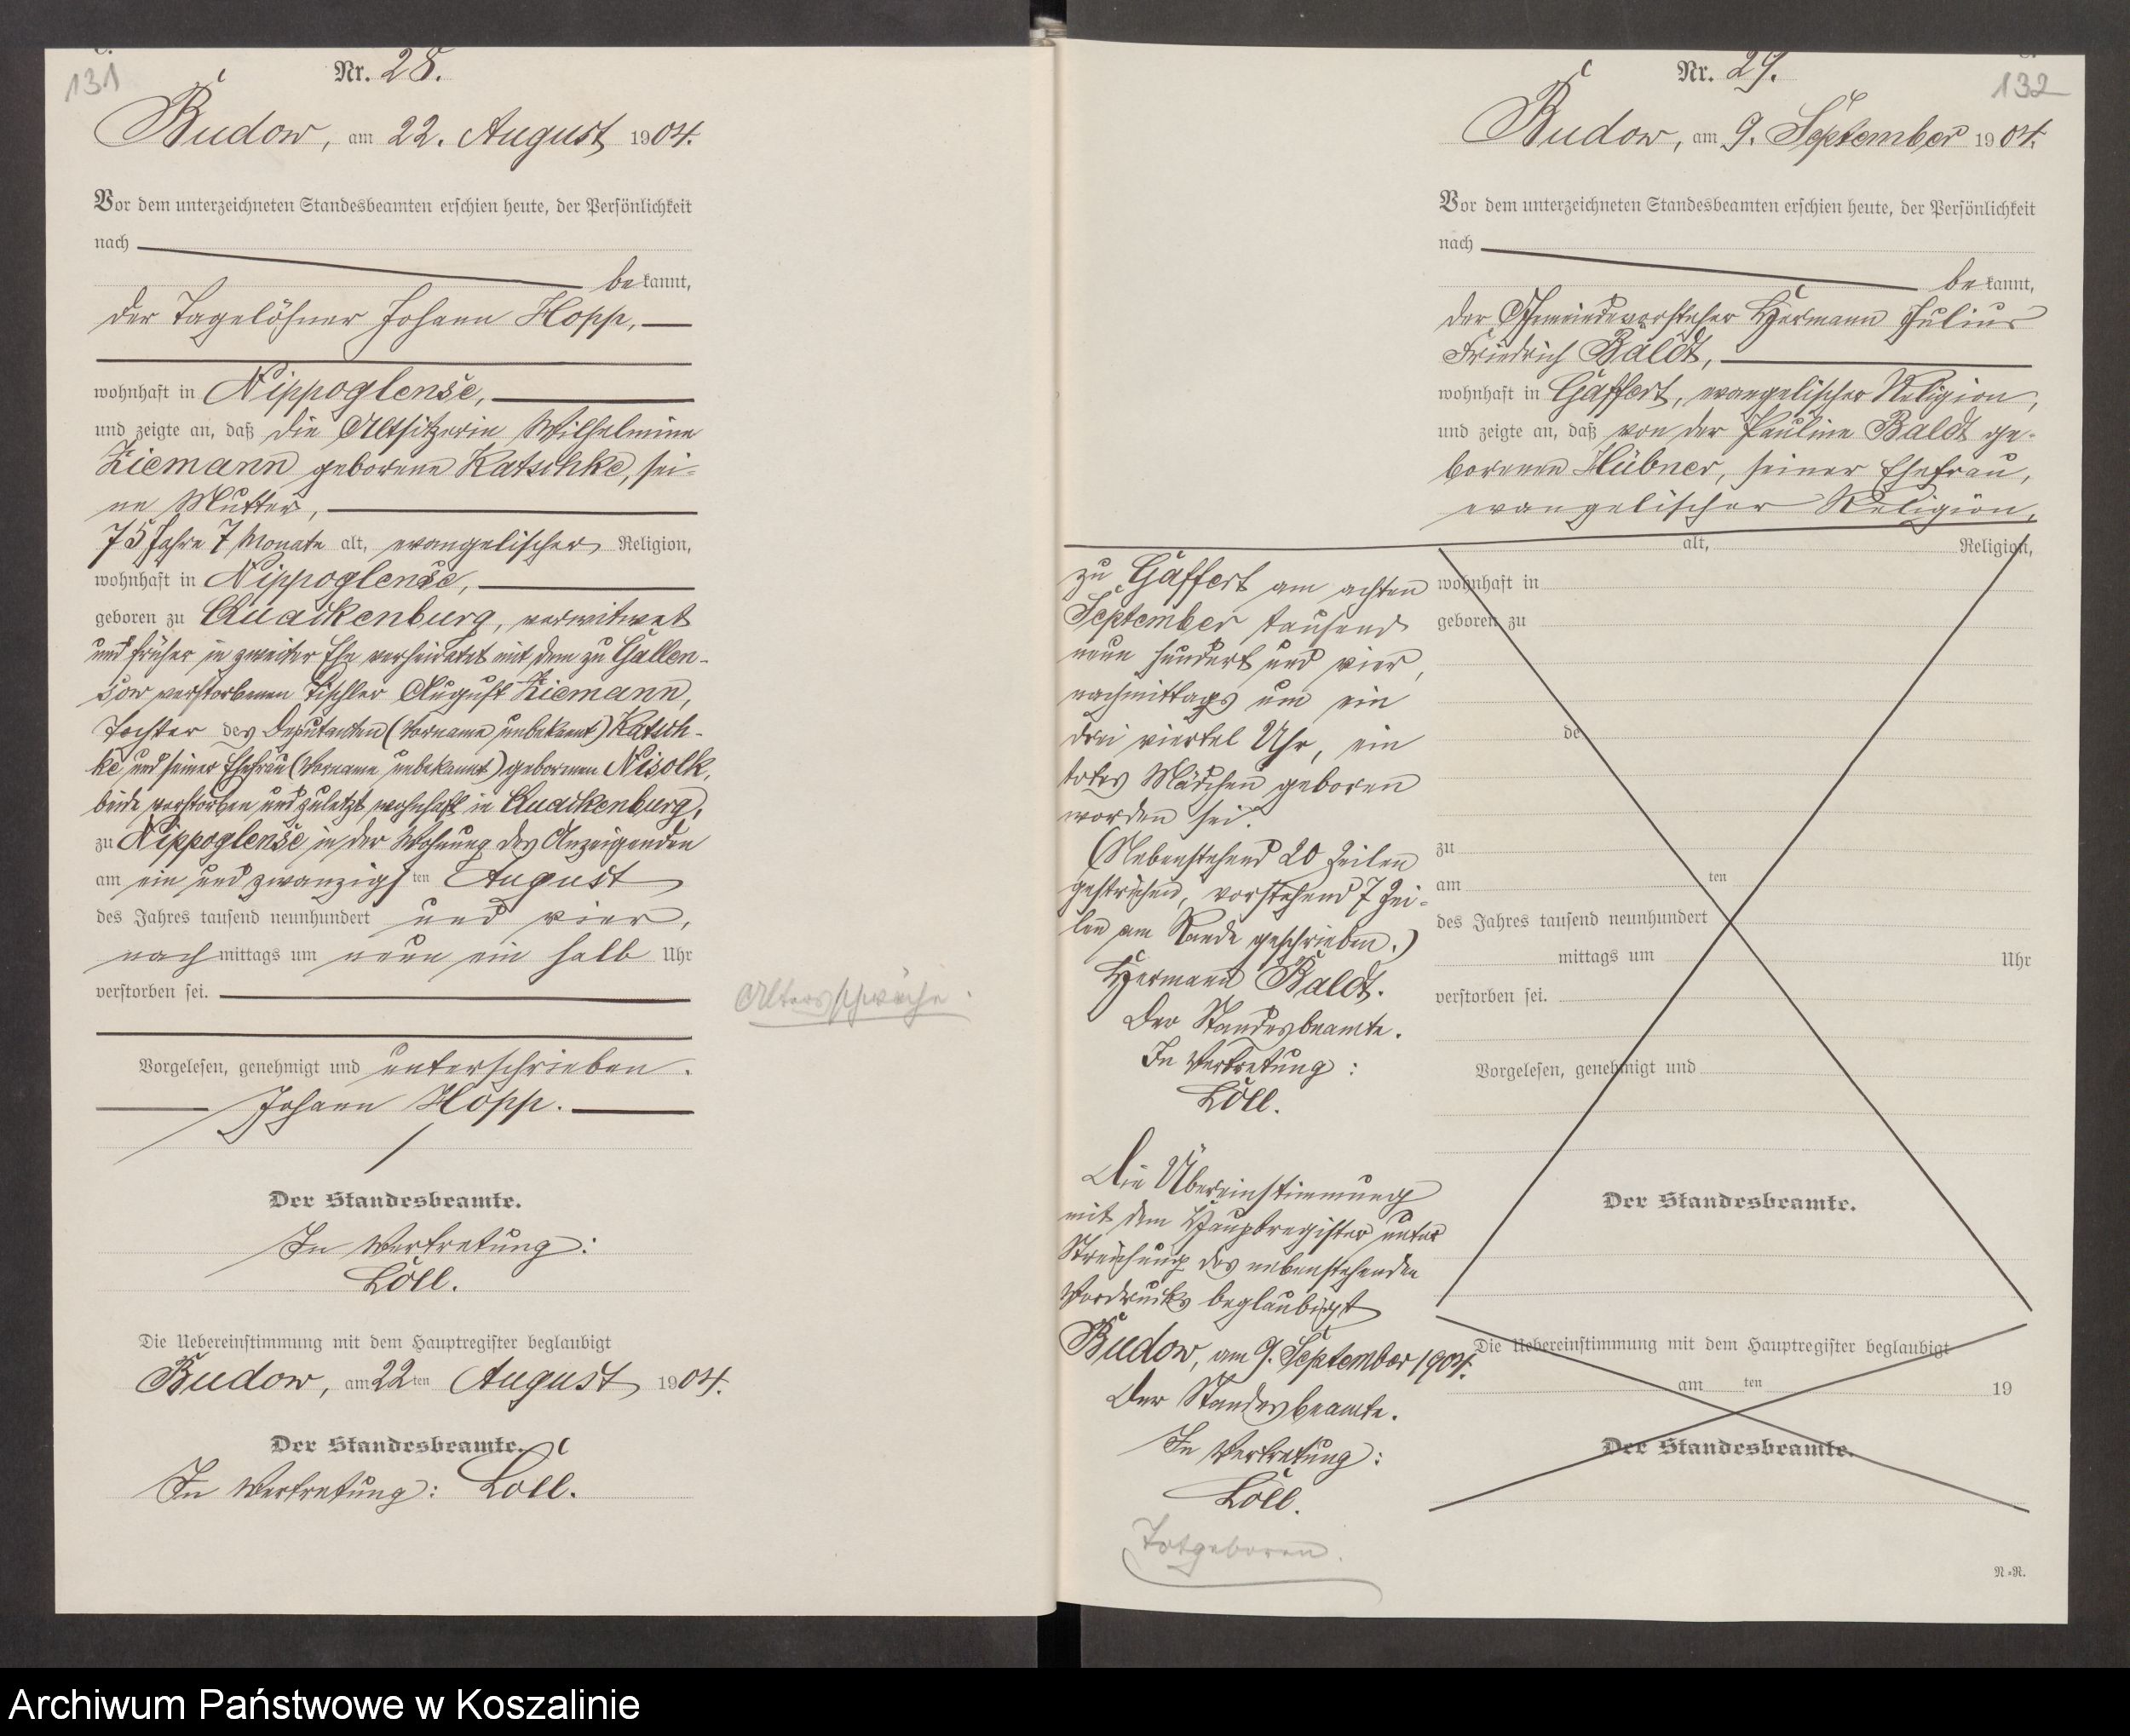 131
C.
Nr. 28.
Budow, am 22. August 1904.
Vor dem unterzeichneten Standesbeamten erschien heute, der Persönlichkeit
nach
bekannt,
der Tagelöhner Johann Hopp,
wohnhaft in Nippoglense,
und zeigte an, daß die Altsitzerin Wilhelmine
Ziemann geborene Katschke, sei-
ne Mutter,
75 Jahre 7 Monate alt, evangelischer Religion,
wohnhaft in Nippoglense,
geboren zu Quackenburg, verwitwet
und früher in zweiter Ehe verheiratet mit dem zu Gallen-
sow verstorbenen Tischler August Ziemann,
Tochter des Deputanten (Vorname unbekannt) Katsch-
ke und seiner Ehefrau (Vorname unbekannt) geborenen Nisolk,
beide verstorben und zuletzt wohnhaft in Quackenburg,
zu Nippoglense in der Wohnung des Anzeigenden
am ein und zwanzigsten August
des Jahres tausend neunhundert und vier,
nachmittags um neun ein halb Uhr
verstorben sei.
Altersschwäche.
Vorgelesen, genehmigt und unterschrieben.
Johann Hopp.
Der Standesbeamte.
In Vertretung:
Löll.
Die Uebereinstimmung mit dem Hauptregister beglaubigt
Budow, am 22ten August 1904.
Der Standesbeamte.
In Vertretung: Löll.
C.
Nr. 29.
132
Budow, am 9. September 1904.
Vor dem unterzeichneten Standesbeamten erschien heute, der Persönlichkeit
nach
bekannt,
der Gemeindevorsteher Hermann Julius
Friedrich Baldt,
wohnhaft in Gaffert, evangelischer Religion,
und zeigte an, daß von der Pauline Baldt ge-
borenen Hübner, seiner Ehefrau,
evangelischer Religion,
zu Gaffert am achten
September tausend
neun hundert und vier,
nachmittags um ein
drei viertel Uhr, ein
totes Mädchen geboren
worden sei.
(Nebenstehend 20 Zeilen
gestrichen, vorstehend 7 Zei-
len am Rande geschrieben.)
Hermann Baldt.
Der Standesbeamte.
In Vertretung:
Löll.
Die Übereinstimmung
mit dem Hauptregister unter
Streichung des nebenstehenden
Vordrucks beglaubigt
Budow, am 9. September 1904.
Der Standesbeamte.
In Vertretung:
Löll.
Totgeboren.
alt, Religion,
wohnhaft in
geboren zu
de
zu
am ten
des Jahres tausend neunhundert
mittags um Uhr
verstorben sei.
Vorgelesen, genehmigt und
Der Standesbeamte.
Die Uebereinstimmung mit dem Hauptregister beglaubigt
am ten 19
Der Standesbeamte.
N.-R.
Archiwum Państwowe w Koszalinie